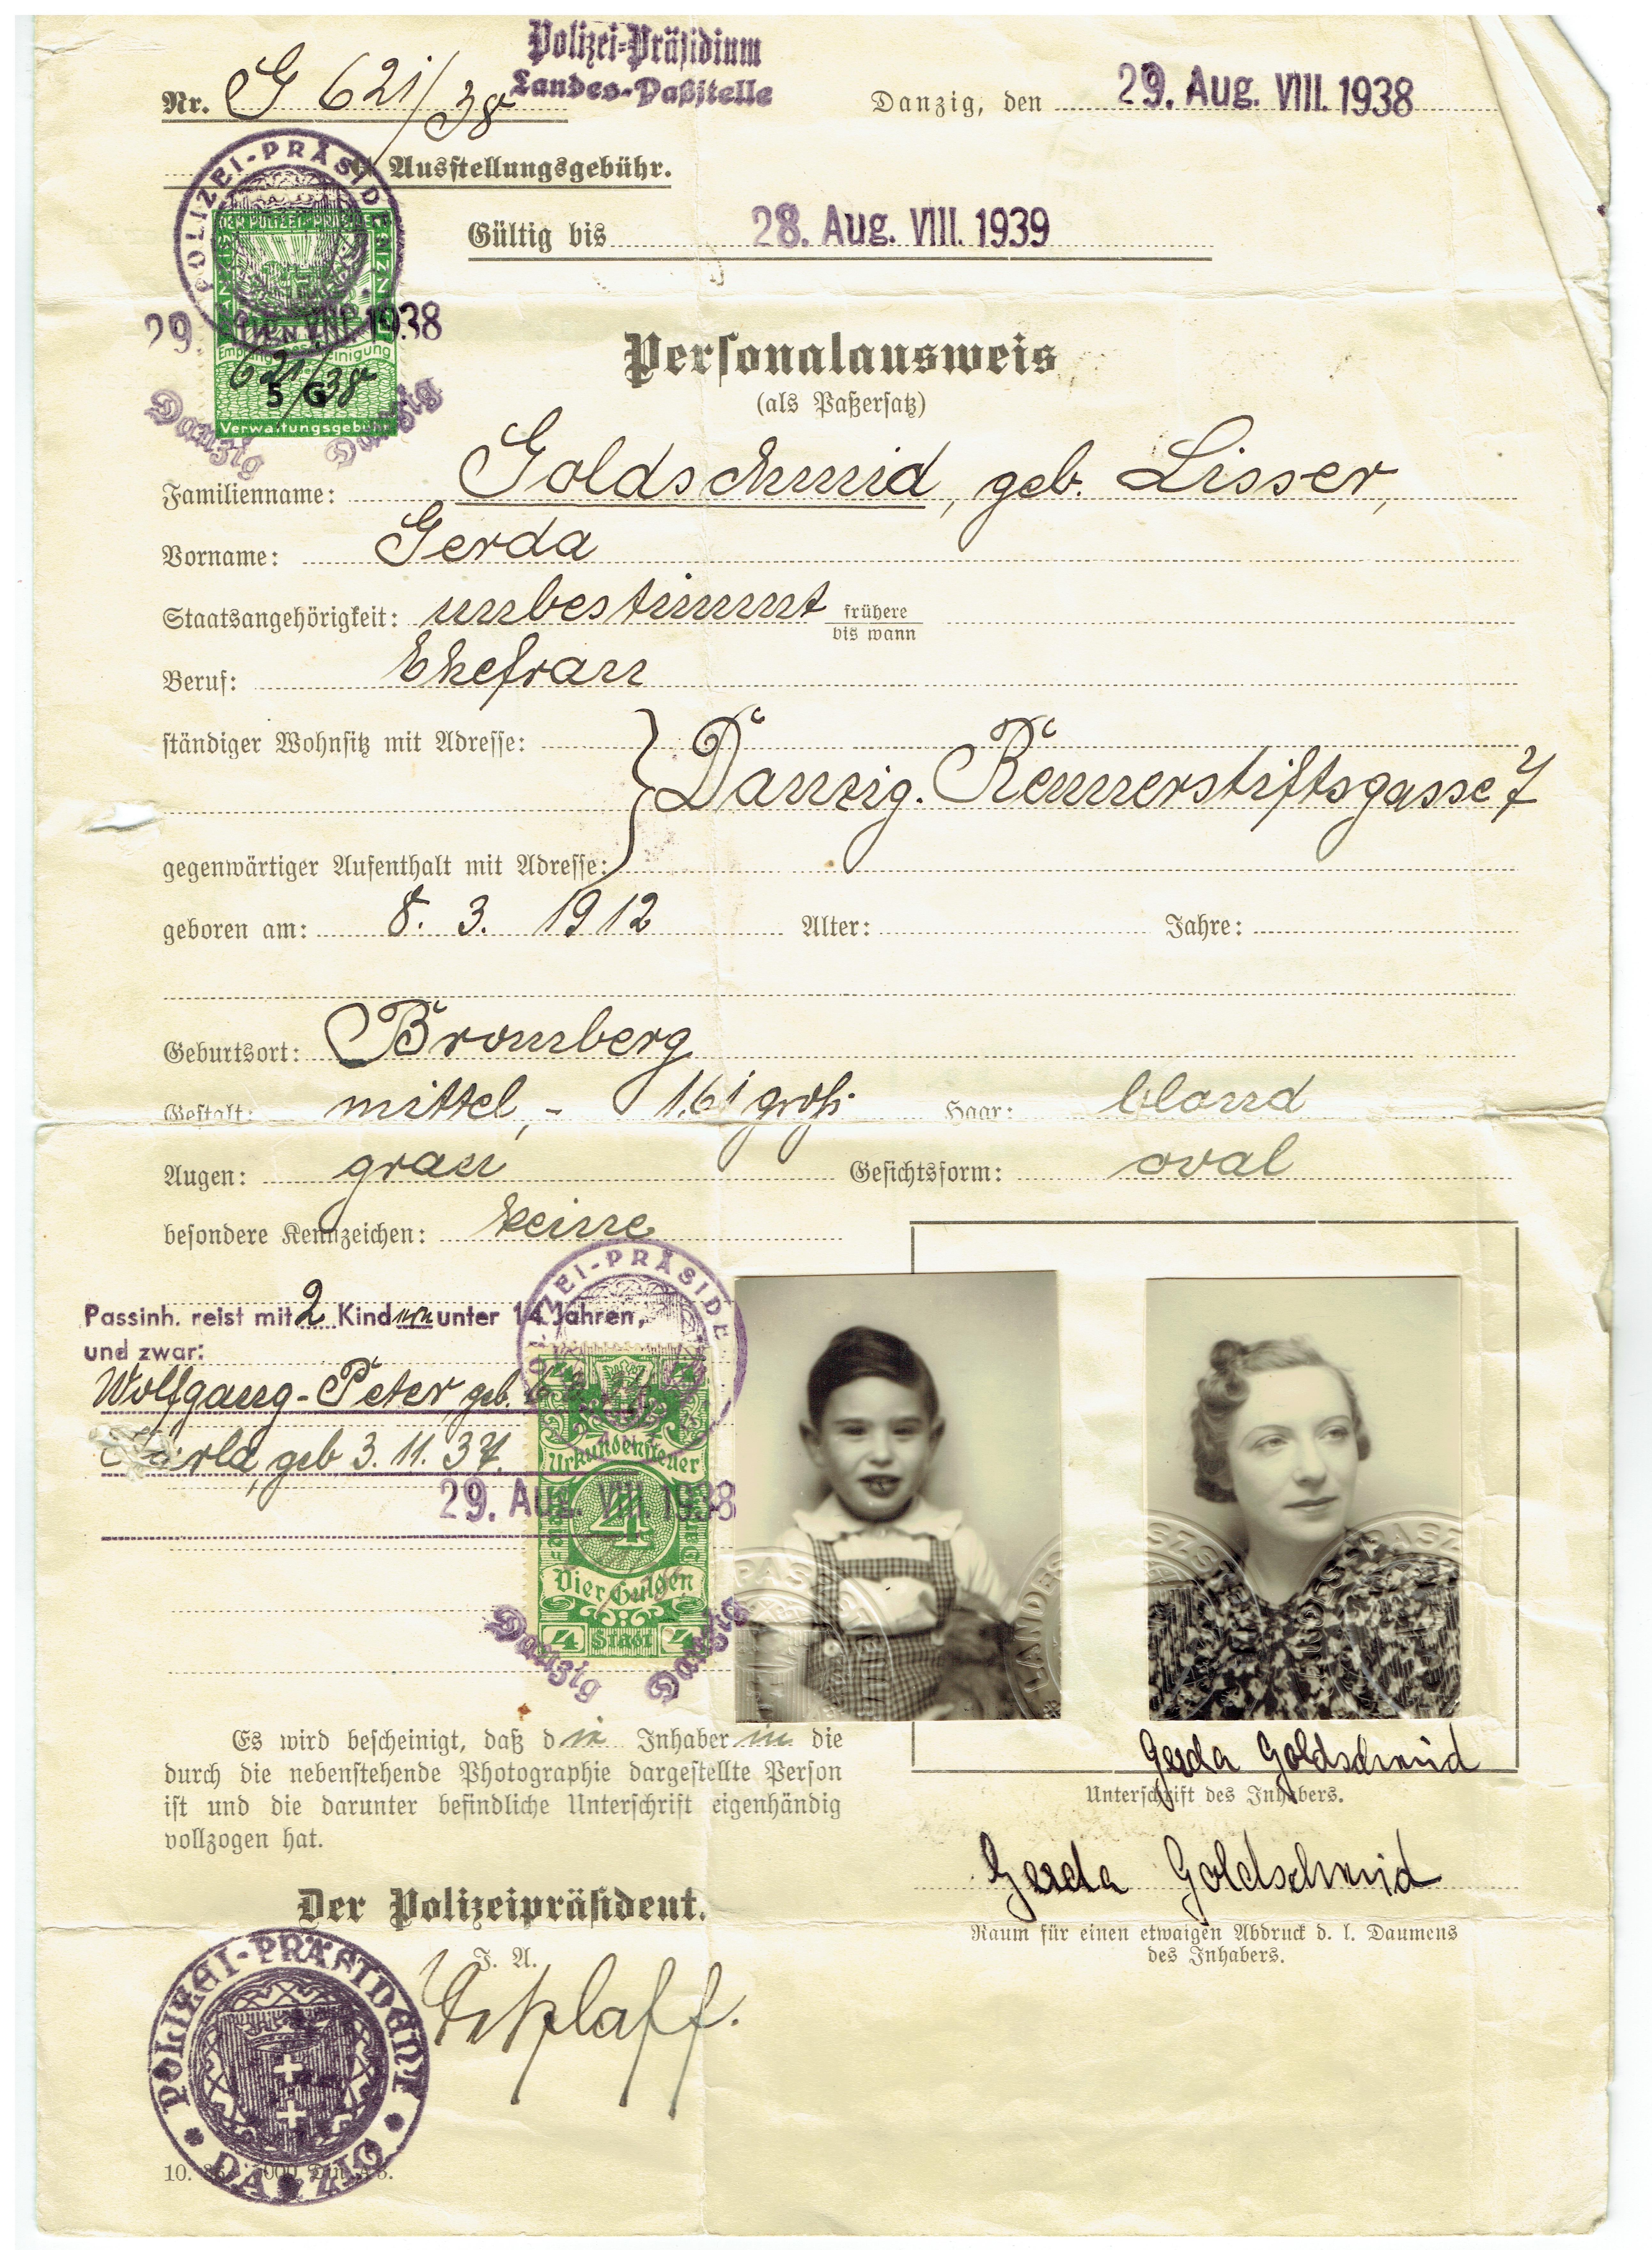 Polizei=Präsidium
Landes-Paßstelle
Nr. G 621/38
Danzig, den 29. Aug. VIII. 1938
G Ausstellungsgebühr.
POLIZEI-PRÄSIDENT
Gültig bis 28. Aug. VIII. 1939
DER POLIZEI-PRÄS
29. 1938
621/38
5 G
Verwaltungsgebühr
Danzig Danzig
Personalausweis
(als Paßersatz)
Familienname: Goldschmid, geb. Lisser,
Vorname: Gerda
Staatsangehörigkeit: unbestimmt frühere
bis wann
Beruf: Ehefrau
ständiger Wohnsitz mit Adresse:
Danzig. Rennerstiftsgasse 7
gegenwärtiger Aufenthalt mit Adresse:
geboren am: 8. 3. 1912 Alter: Jahre:
Geburtsort: Bromberg
Gestalt: mittel, - 1.61 groß Haar: blond
Augen: grau Gesichtsform: oval
besondere Kennzeichen: keine
POLIZEI-PRÄSIDE
Passinh. reist mit 2 Kindern unter 14 Jahren,
und zwar:
Wolfgang-Peter, geb.
geb 3. 11. 37.
Urkundensteuer
29. Aug. VIII. 1938
4
Vier Gulden
4 Stadt 4
Danzig Danzig
Es wird bescheinigt, daß die Inhaberin die
durch die nebenstehende Photographie dargestellte Person
ist und die darunter befindliche Unterschrift eigenhändig
vollzogen hat.
Gerda Goldschmid
Unterschrift des Inhabers.
Gerda Goldschmid
Raum für einen etwaigen Abdruck d. l. Daumens
des Inhabers.
Der Polizeipräsident.
J. A.
POLIZEI-PRÄSIDENT DANZIG
10.